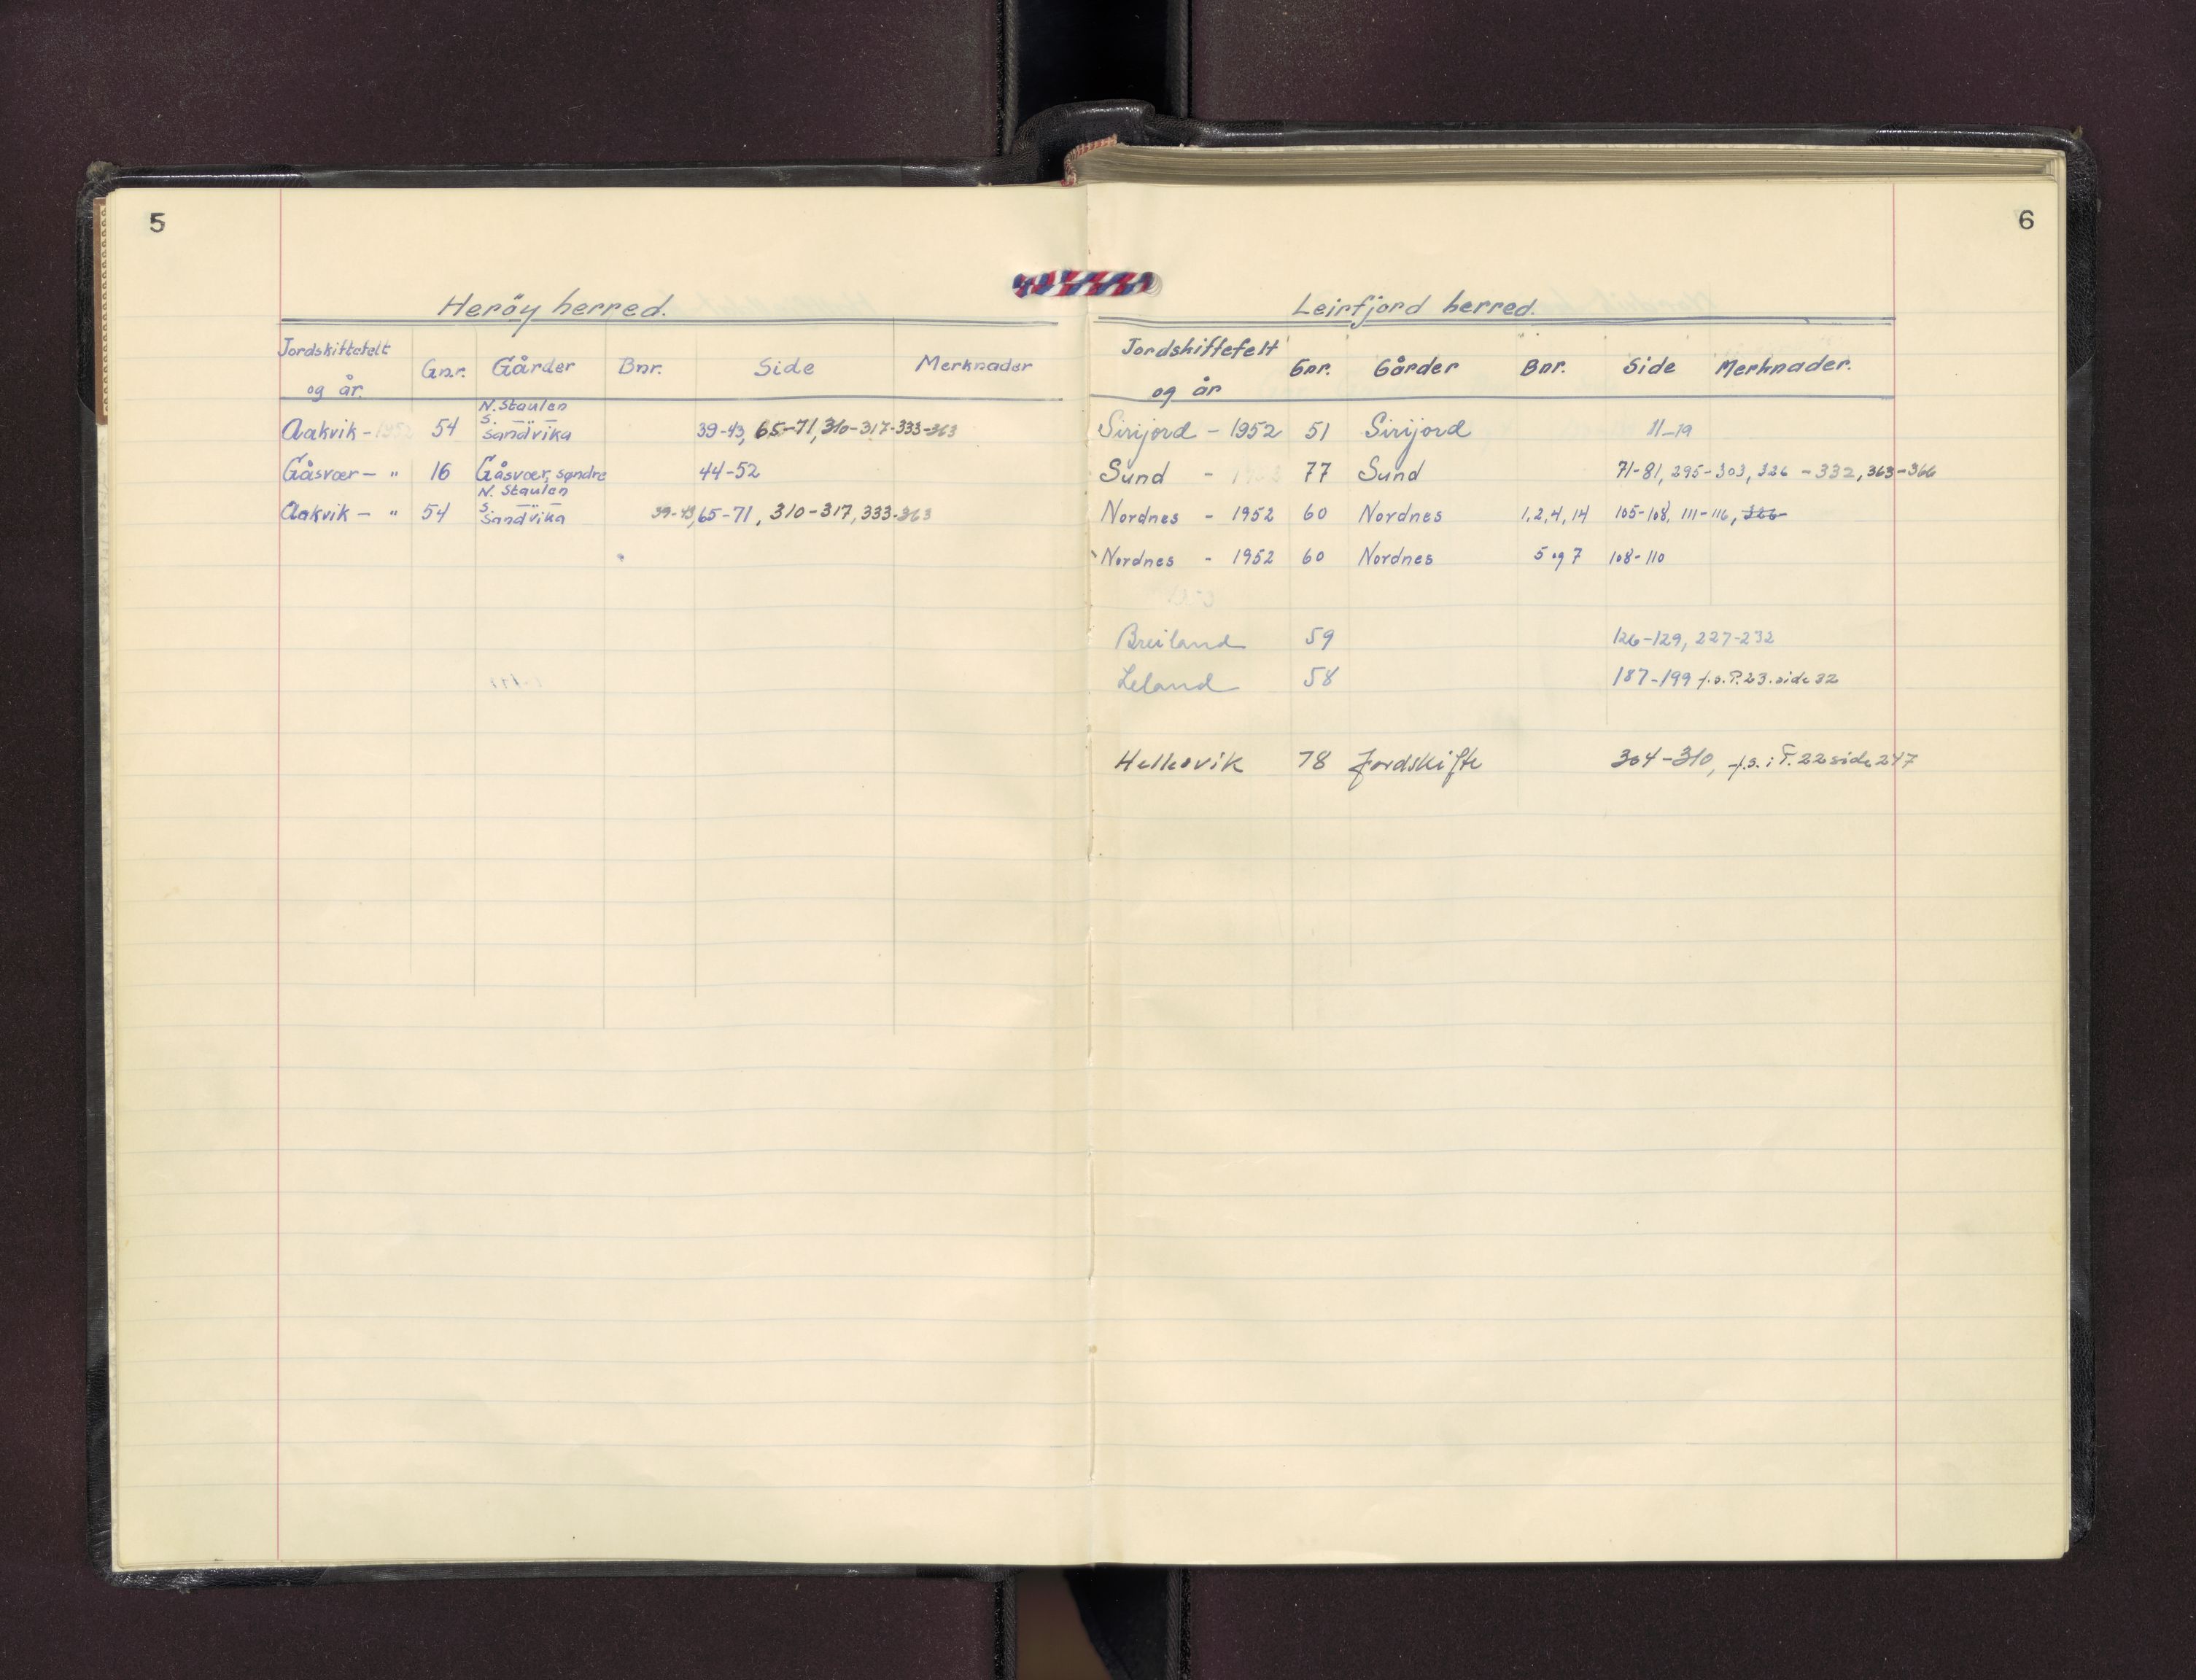 5
Heröy herred.
Jordskiftefelt og år. Gnr. Gårder Bnr. Side Merknader
N. Staulen
Aakvik - 1952 54 S. — " — Sandvika 39-43, 65-71, 310-317-333-363
Gåsvær - " 16 Gåsvær, søndre 44-52
N. Staulen
Aakvik - " 54 S. — " — Sandvika 39-43, 65-71, 310-317, 333-363
6
Leirfjord herred.
Jordskiftefelt og år Gnr. Gårder Bnr. Side Merknader.
Sirijord - 1952 51 Sirijord 11-19
Sund - 77 Sund 71-81, 295-303, 326-332, 363-366
Nordnes - 1952 60 Nordnes 1, 2, 4, 14 105-108, 111-116, 366
Nordnes - 1952 60 Nordnes 5 og 7 108-110
Breiland 59 126-129, 227-232
Leland 58 187-199 f.s. P. 23. side 32
Hellesvik 78 Jordskifte 304-310, f.s. i P. 22 side 247